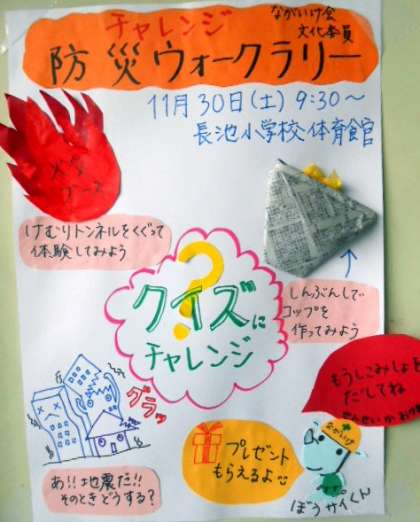 ながいけ会
文化委員
チャレンジ
防災ウォークラリー
11月30日(土) 9:30〜
長池小学校体育館
けむりトンネルをくぐって
体験してみよう
しんぶんしで
コップを
作ってみよう
?
クイズに
チャレンジ
グラッ
あ!!地震だ!!
そのときどうする?
プレゼント
もらえるよ
もうしこみしょを
だしてね
ながいけ
ぼうサイくん